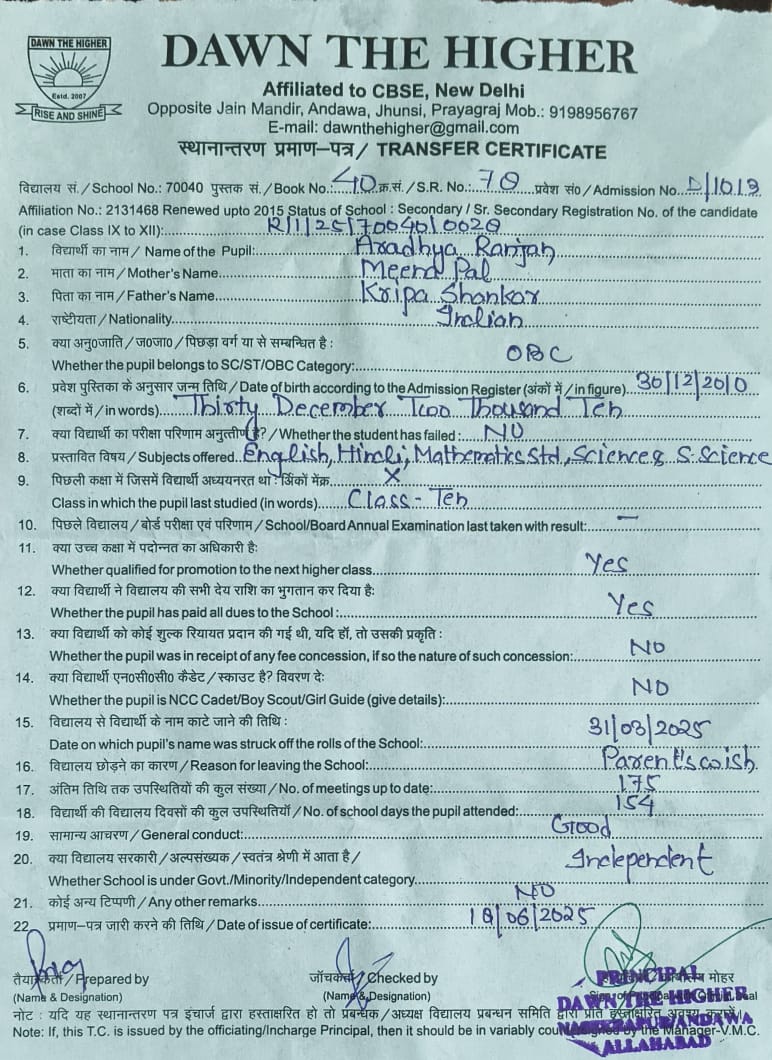 DAWN THE HIGHER
Estd. 2007
RISE AND SHINE
DAWN THE HIGHER
Affiliated to CBSE, New Delhi
Opposite Jain Mandir, Andawa, Jhunsi, Prayagraj Mob.: 9198956767
E-mail: dawnthehigher@gmail.com
स्थानान्तरण प्रमाण–पत्र / TRANSFER CERTIFICATE
विद्यालय सं. / School No.: 70040 पुस्तक सं. / Book No.: 40 क्र.सं. / S.R. No.: 78 प्रवेश सं० / Admission No. D/1013
Affiliation No.: 2131468 Renewed upto 2015 Status of School : Secondary / Sr. Secondary Registration No. of the candidate
(in case Class IX to XII): R/1/25/70040/0028
1. विद्यार्थी का नाम / Name of the Pupil: Aradhya Ranjan
2. माता का नाम / Mother's Name Meena Pal
3. पिता का नाम / Father's Name Kripa Shankar
4. राष्टीयता / Nationality Indian
5. क्या अनु०जाति / ज०जा० / पिछड़ा वर्ग या से सम्बन्धित है :
Whether the pupil belongs to SC/ST/OBC Category: OBC
6. प्रवेश पुस्तिका के अनुसार जन्म तिथि / Date of birth according to the Admission Register (अंकों में / in figure) 30/12/2010
(शब्दों में / in words) Thirty December Two Thousand Ten
7. क्या विद्यार्थी का परीक्षा परिणाम अनुत्तीर्ण है? / Whether the student has failed : NO
8. प्रस्तावित विषय / Subjects offered English, Hindi, Mathematics Std, Science & S.Science
9. पिछली कक्षा में जिसमें विद्यार्थी अध्ययनरत था : अंकों में X
Class in which the pupil last studied (in words) Class - Ten
10. पिछले विद्यालय / बोर्ड परीक्षा एवं परिणाम / School/Board Annual Examination last taken with result: —
11. क्या उच्च कक्षा में पदोन्नत का अधिकारी है:
Whether qualified for promotion to the next higher class Yes
12. क्या विद्यार्थी ने विद्यालय की सभी देय राशि का भुगतान कर दिया है:
Whether the pupil has paid all dues to the School : Yes
13. क्या विद्यार्थी को कोई शुल्क रियायत प्रदान की गई थी, यदि हॉं, तो उसकी प्रकृति :
Whether the pupil was in receipt of any fee concession, if so the nature of such concession: NO
14. क्या विद्यार्थी एन०सी०सी० कैडेट / स्काउट है? विवरण दे:
Whether the pupil is NCC Cadet/Boy Scout/Girl Guide (give details): NO
15. विद्यालय से विद्यार्थी के नाम काटे जाने की तिथि :
Date on which pupil's name was struck off the rolls of the School: 31/03/2025
16. विद्यालय छोड़ने का कारण / Reason for leaving the School: Parent's wish
17. अंतिम तिथि तक उपस्थितियों की कुल संख्या / No. of meetings up to date: 175
18. विद्यार्थी की विद्यालय दिवसों की कुल उपस्थितियॉं / No. of school days the pupil attended: 154
19. सामान्य आचरण / General conduct: Good
20. क्या विद्यालय सरकारी / अल्पसंख्यक / स्वतंत्र श्रेणी में आता है /
Whether School is under Govt./Minority/Independent category Independent
21. कोई अन्य टिप्पणी / Any other remarks NO
22. प्रमाण–पत्र जारी करने की तिथि / Date of issue of certificate: 18/06/2025
तैयारकर्ता / Prepared by जॉंचकर्ता / Checked by मोहर
(Name & Designation) (Name & Designation) Seal
PRINCIPAL
DAWN THE HIGHER
/ANDAWA
ALLAHABAD
नोट : यदि यह स्थानान्तरण पत्र इंचार्ज द्वारा हस्ताक्षरित हो तो प्रबन्धक / अध्यक्ष विद्यालय प्रबन्धन समिति द्वारा प्रति हस्ताक्षरित अवश्य करायें।
Note: If, this T.C. is issued by the officiating/Incharge Principal, then it should be in variably by the Manager-V.M.C.